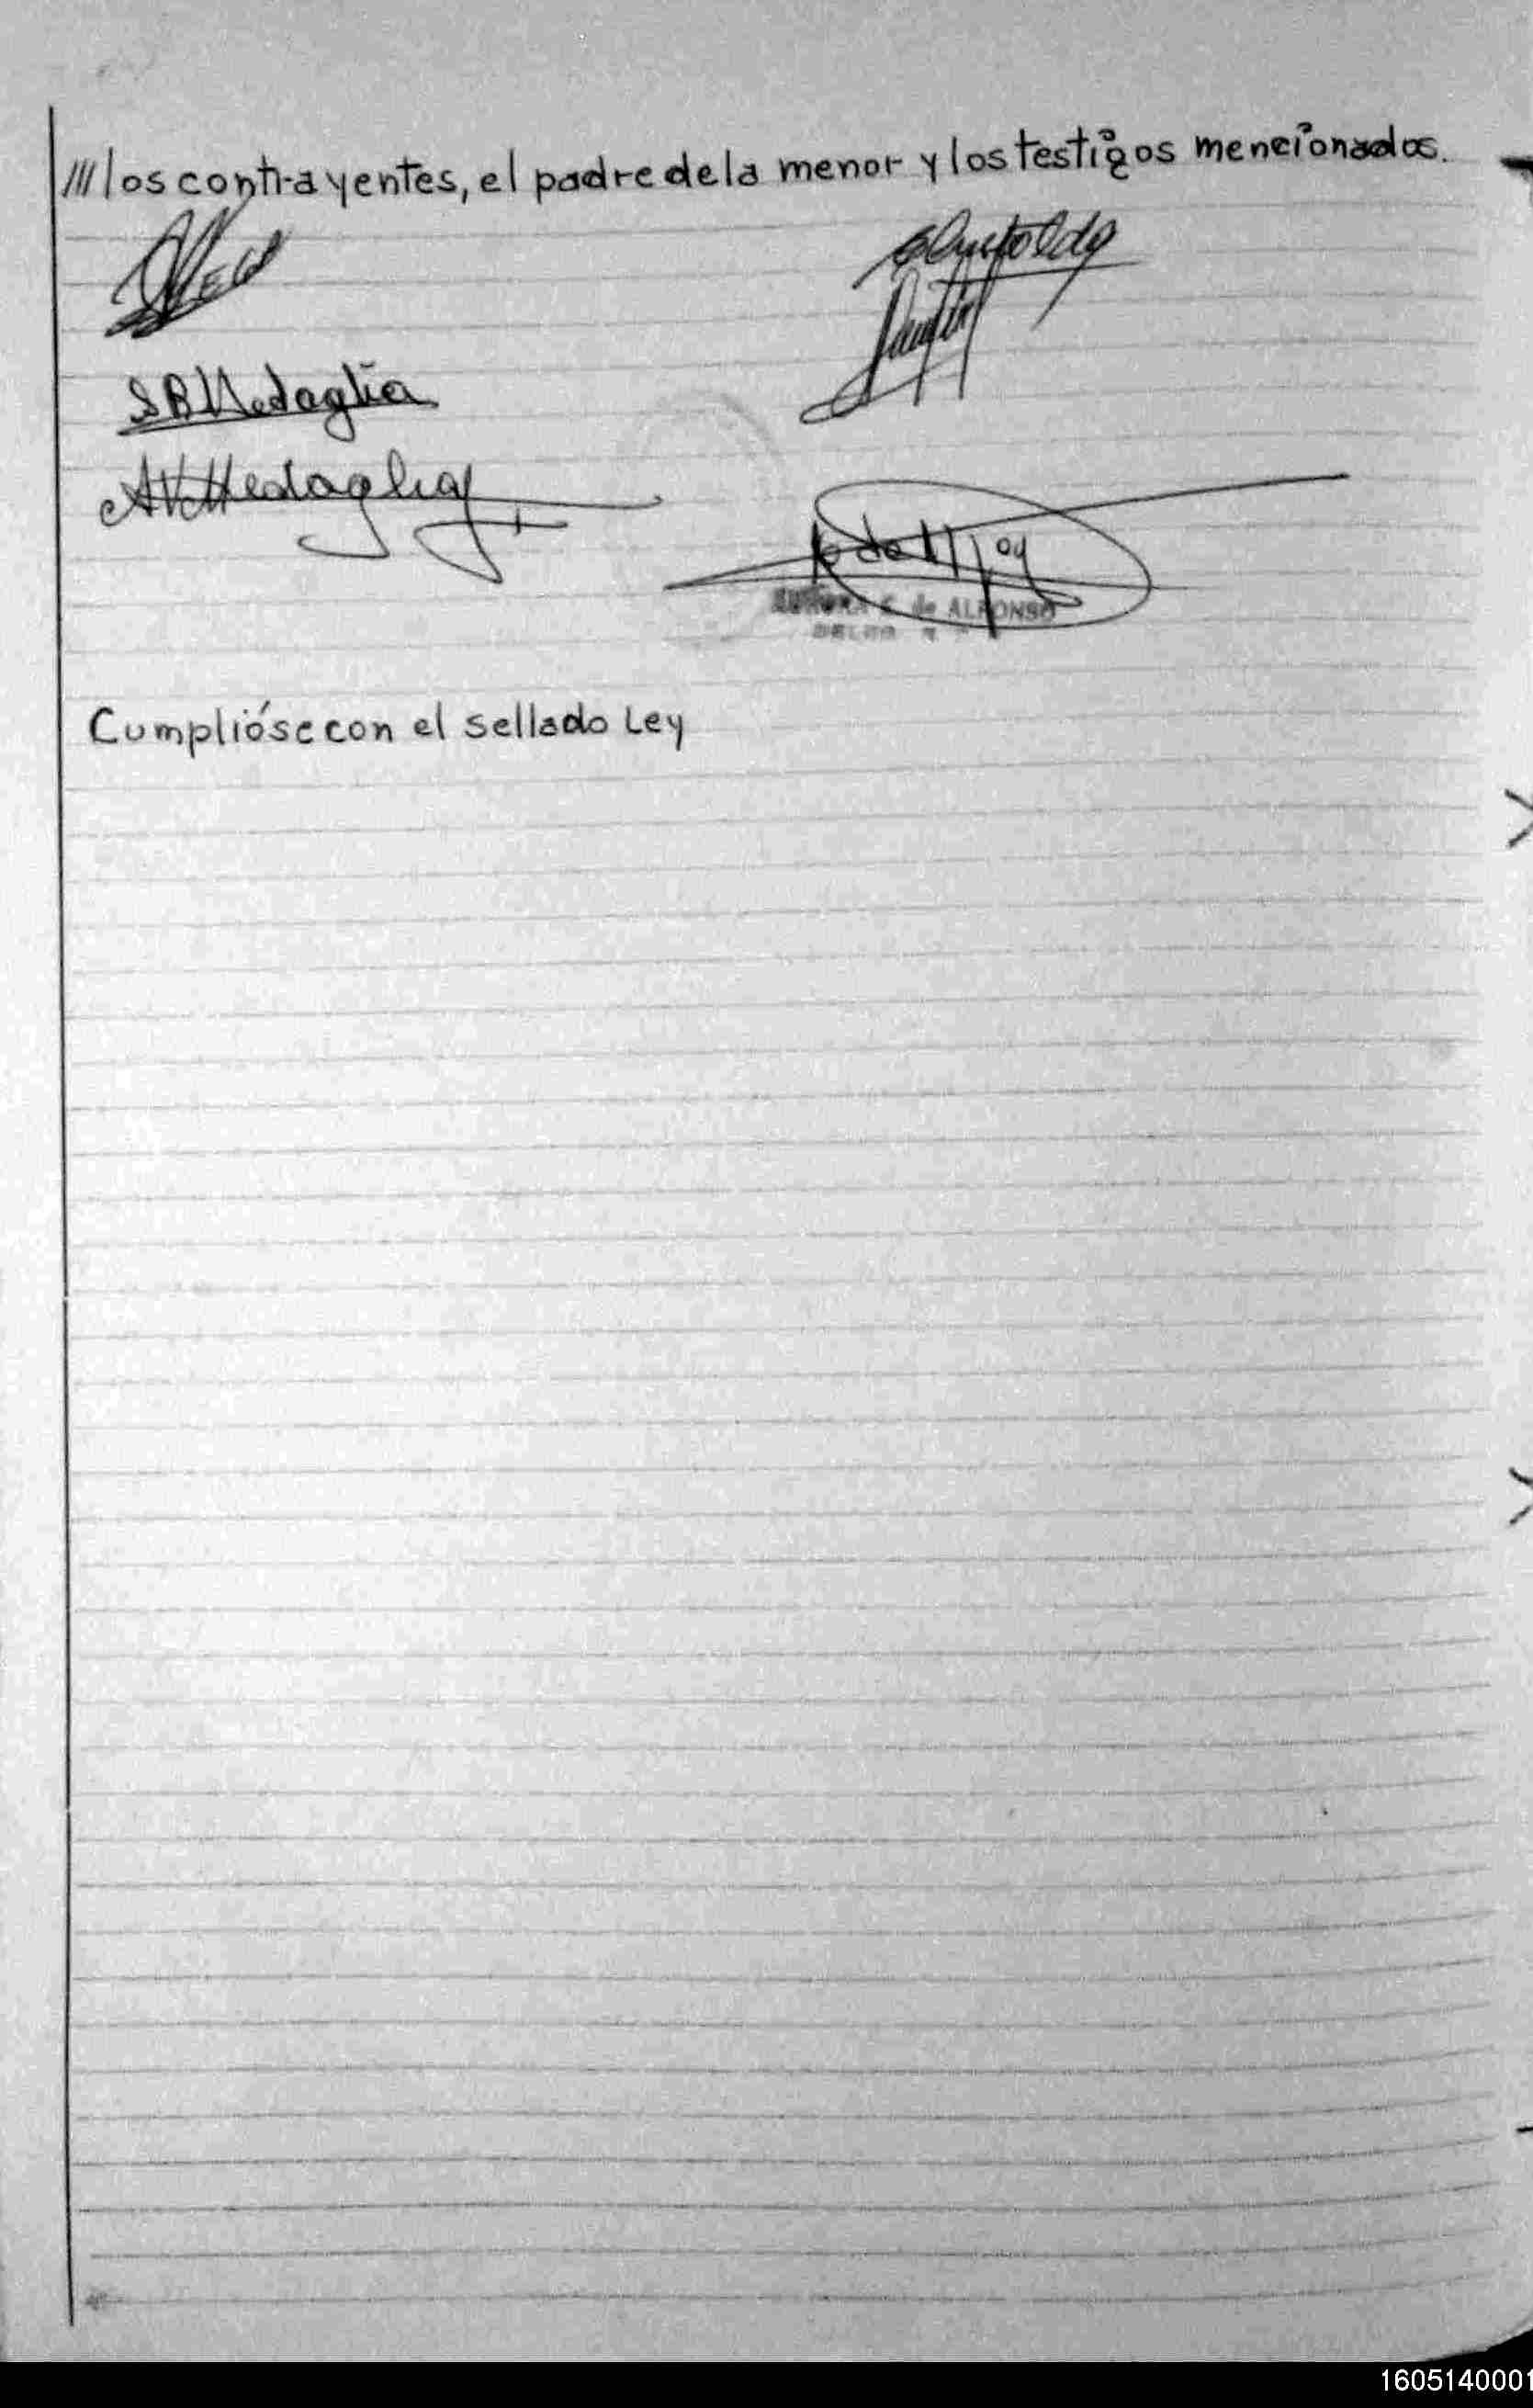 /// los contrayentes, el padre de la menor y los testigos mencionados.
SBMedaglia
AVMedaglia
de ALFONSO
Cumplióse con el sellado Ley
1605140001